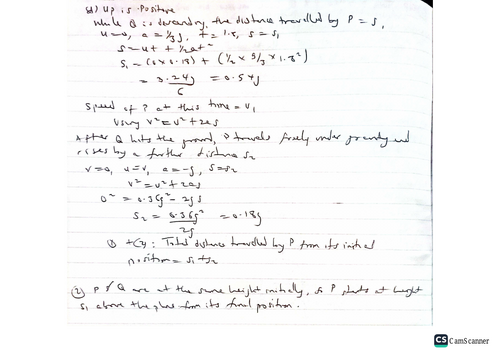 d) Up is Positive
While Q is descending, the distance travelled by P = S,
u=0, a = 1/3g, t = 1.8, s = s₁
s = ut + 1/2at²
s₁ = (0 × 0.18) + (1/2 × g/3 × 1.8²)
= 3.24g = 0.54g
6
Speed of P at this time = v₁
Using v² = u² + 2as
After Q hits the ground, P travels freely under gravity and
rises by a further distance s₂
v=0, u=v, a=-g, s=s₂
v² = u² + 2as
0² = 0.36g² - 2gs
s₂ = 0.36g² = 0.18g
2g
Total distance travelled by P from its initial
position = s₁+s₂
② P & Q are at the same height initially, so P starts at height
s₁ above the plane from its final position.
CS CamScanner